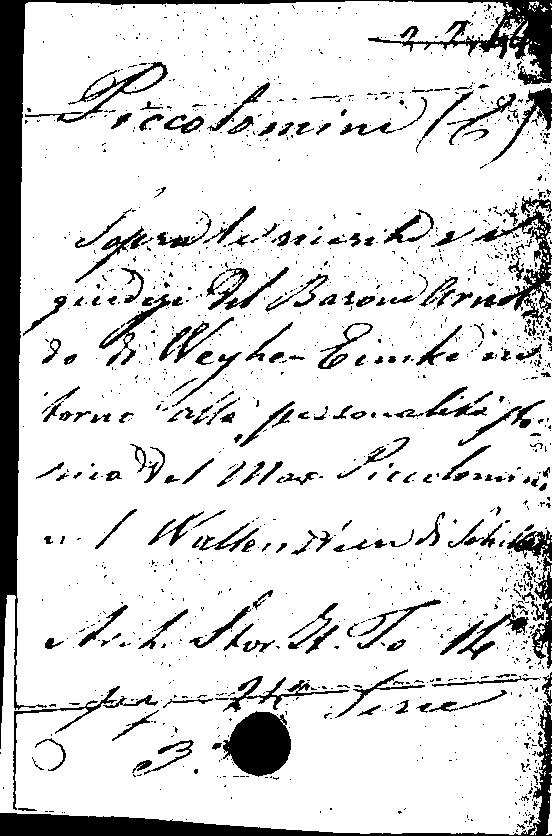 Piccolomini (C)
Sopra le ricerche e i
giudizi del Barone Arnol-
do di Weyhe-Eimke in
torno alla personalità sto-
rica del Max Piccolomini
nel Wallenstein di Schiller
Arch. Stor. It. To 14º
pag. 24ª Serie
3.ª